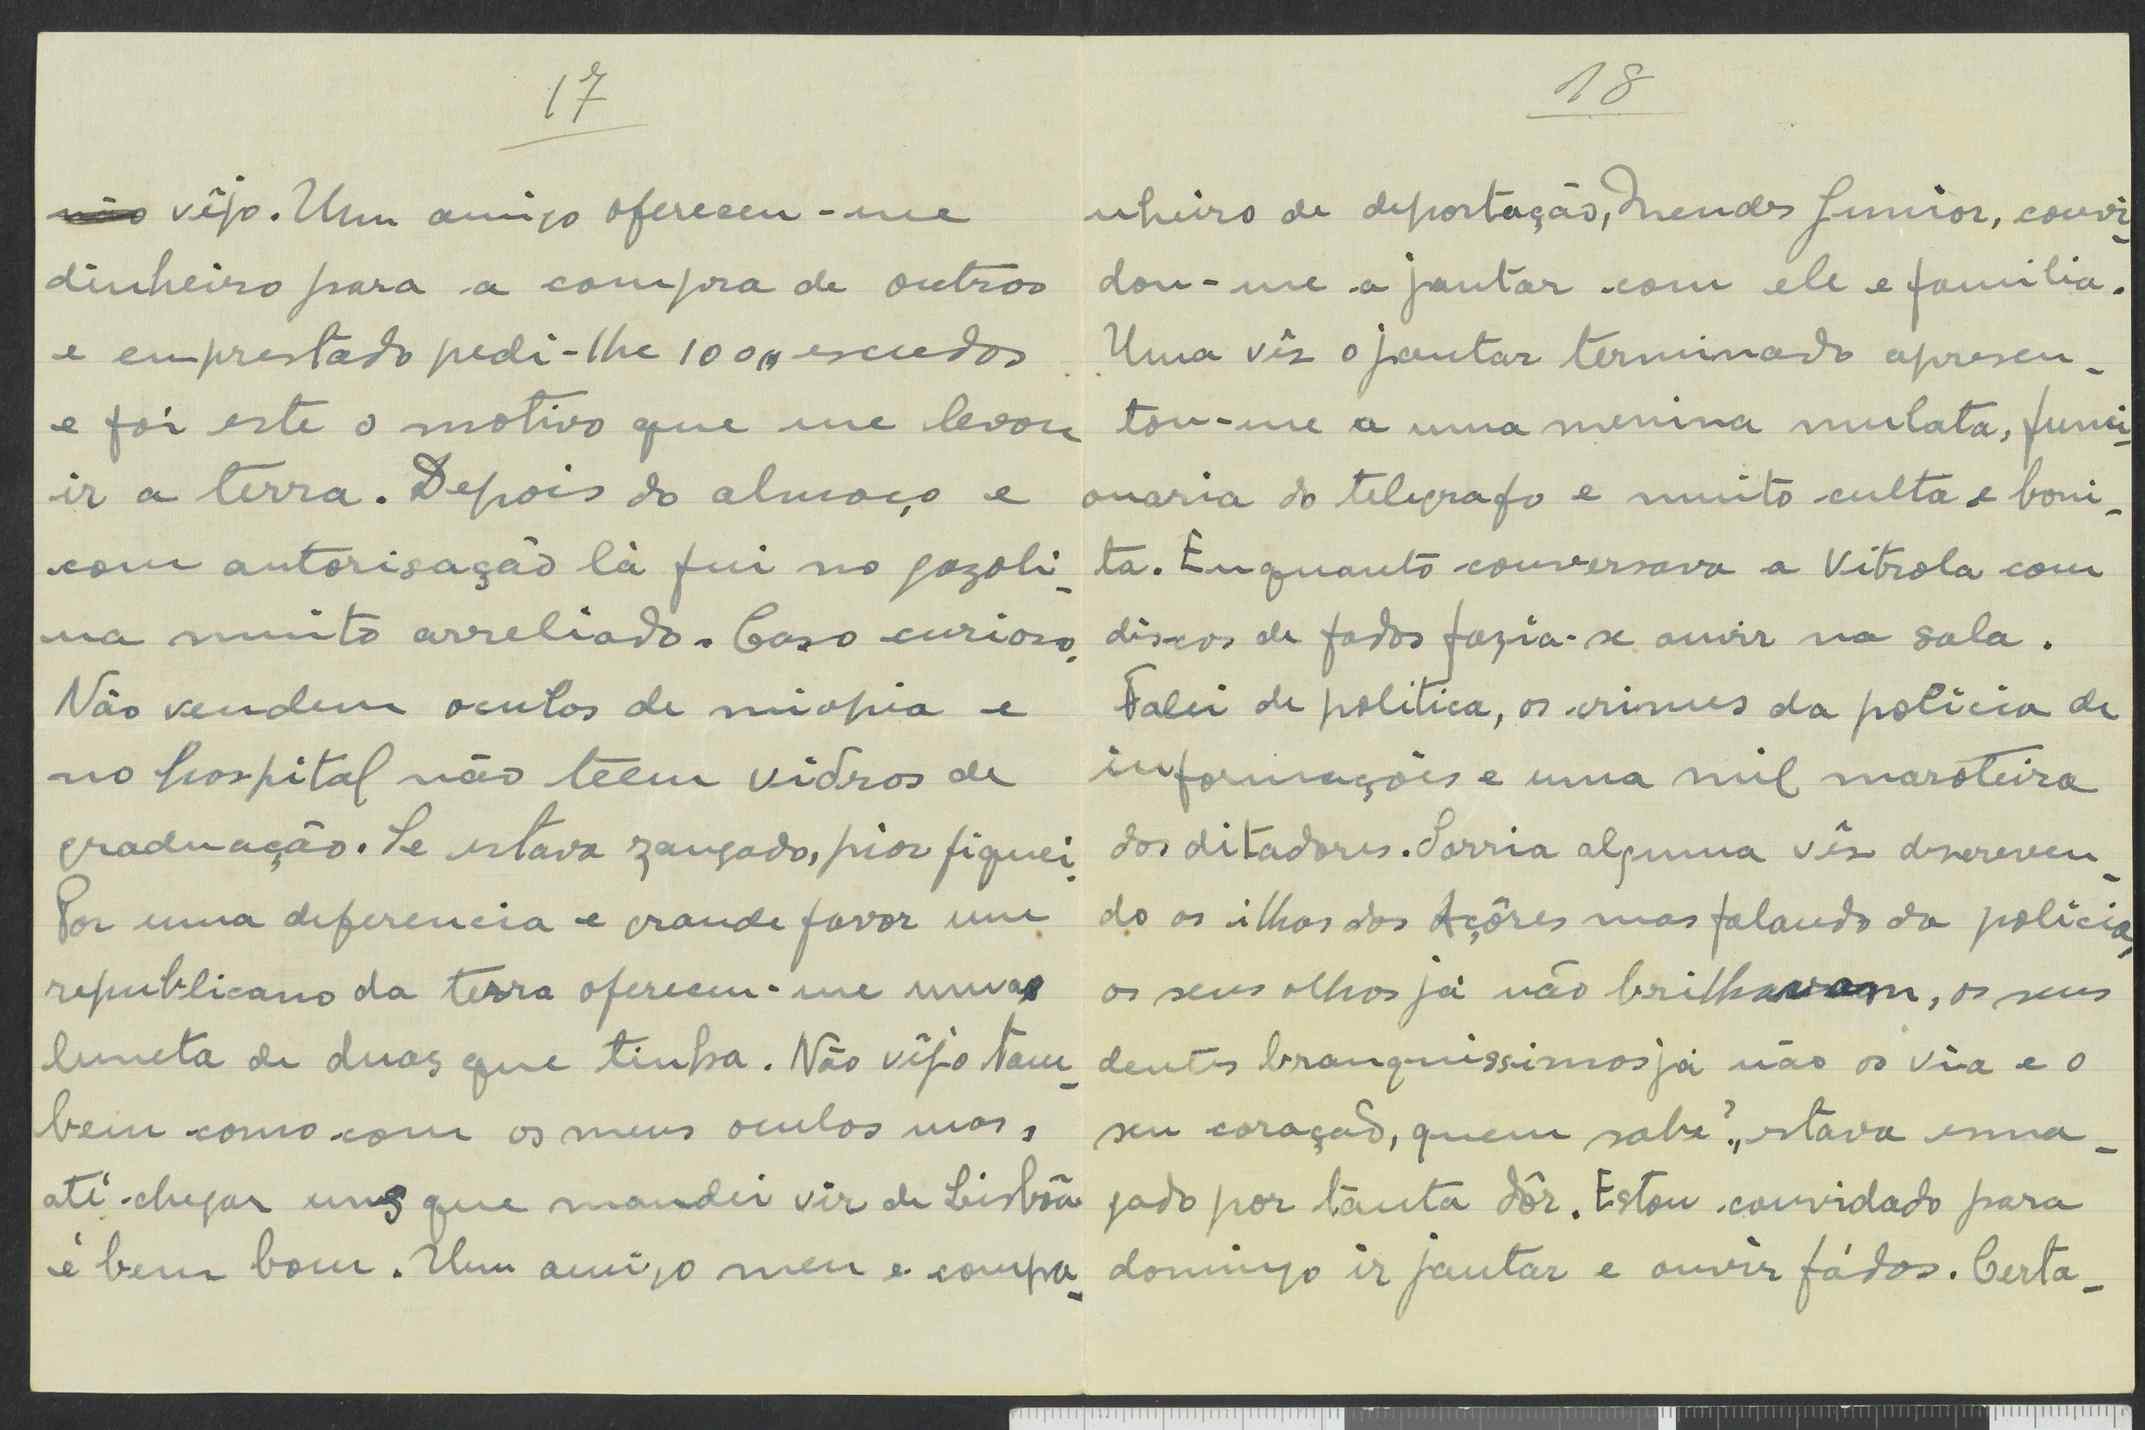 17
não vêjo. Um amigo ofereceu-me
dinheiro para a compra de outros
e emprestado pedi-lhe 100,, escudos
e foi este o motivo que me levou
ir a terra. Depois do almoço e
com autorisação lá fui no gazoli-
na muito arreliado. Caso curioso.
Não vendem oculos de miopia e
no hospital não téem vidros de
graduação. Se estava zangado, pior fiquei.
Por uma deferencia e grande favor um
republicano da terra ofereceu-me uma
luneta de duas que tinha. Não vêjo tam-
bem como com os meus oculos mas,
até chegar uns que mandei vir de Lisbôa
é bem bom. Um amigo meu e compa-
18
nheiro de deportação, Mendes Junior, convi-
dou-me a jantar com ele e familia.
Uma vês o jantar terminado apresen-
tou-me a uma menina mulata, funci-
onaria do telegrafo e muito culta e boni-
ta. Enquanto conversava a Vitrola com
discos de fados fazia-se ouvir na sala.
Falei de politica, os crimes da policia de
informações e uma mil maroteira
dos ditadores. Sorria alguma vês descreven-
do as ilhas dos Açôres mas falando da policia,
os seus olhos já não brilhavam, os seus
dentes branquissimos já não os via e o
seu coração, quem sabe?,, estava esma-
gado por tanta dôr. Estou convidado para
domingo ir jantar e ouvir fádos. Certa-